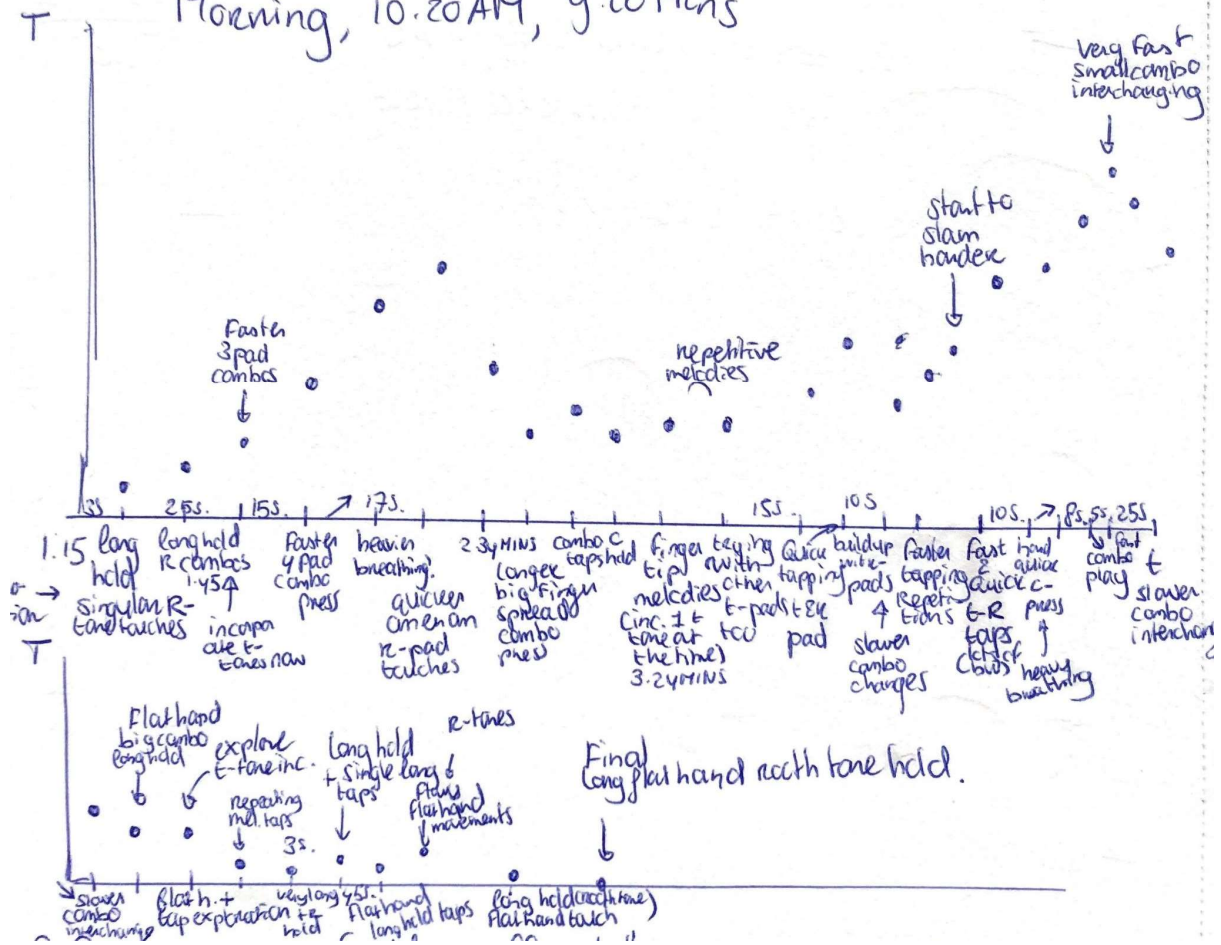 T
Morning, 10.20AM,
very Fast
small combo
interchanging
start to
slam
harder
Faster
3 pad
combos
repetitive
melodies
3s
25s.
15s.
17s.
15s.
10s
10s.
8s. 5s. 25s
1.15
long
hold
singular R-
tone touches
long hold
R combos
1.45
incorpo
ate t-
tones now
Faster
4 pad
combo
press
heavier
breathing.
quicker
R-pad
touches
2.34 MINS
longer
big finger
spread
combo
press
combo C
taps hold
finger
tip
melodies
(inc. 1 t
tone at
the time)
3.24 MINS
trying
with
other
t-pads
too
Quick
tapping
t&R
pad
buildup
pads
slower
combo
changes
Faster
tapping
Repeti
tions
Fast
&
quick
t-R
taps
hard
quick
press
heavy
breathing
fast
combo
play
t
slower
combo
interchang
T
Flat hand
big combo
long hold
explore
t-tone inc.
repeating
mel. taps
3s.
Long hold
+ single long
taps
R-tones
flat hand
movements
Final
long flat hand rooth tone hold.
slower
combo
interchange
flat h. +
tap exploration
very long
hold
45s.
Flat hand
long hold taps
long hold (rooth tone)
Flat hand touch